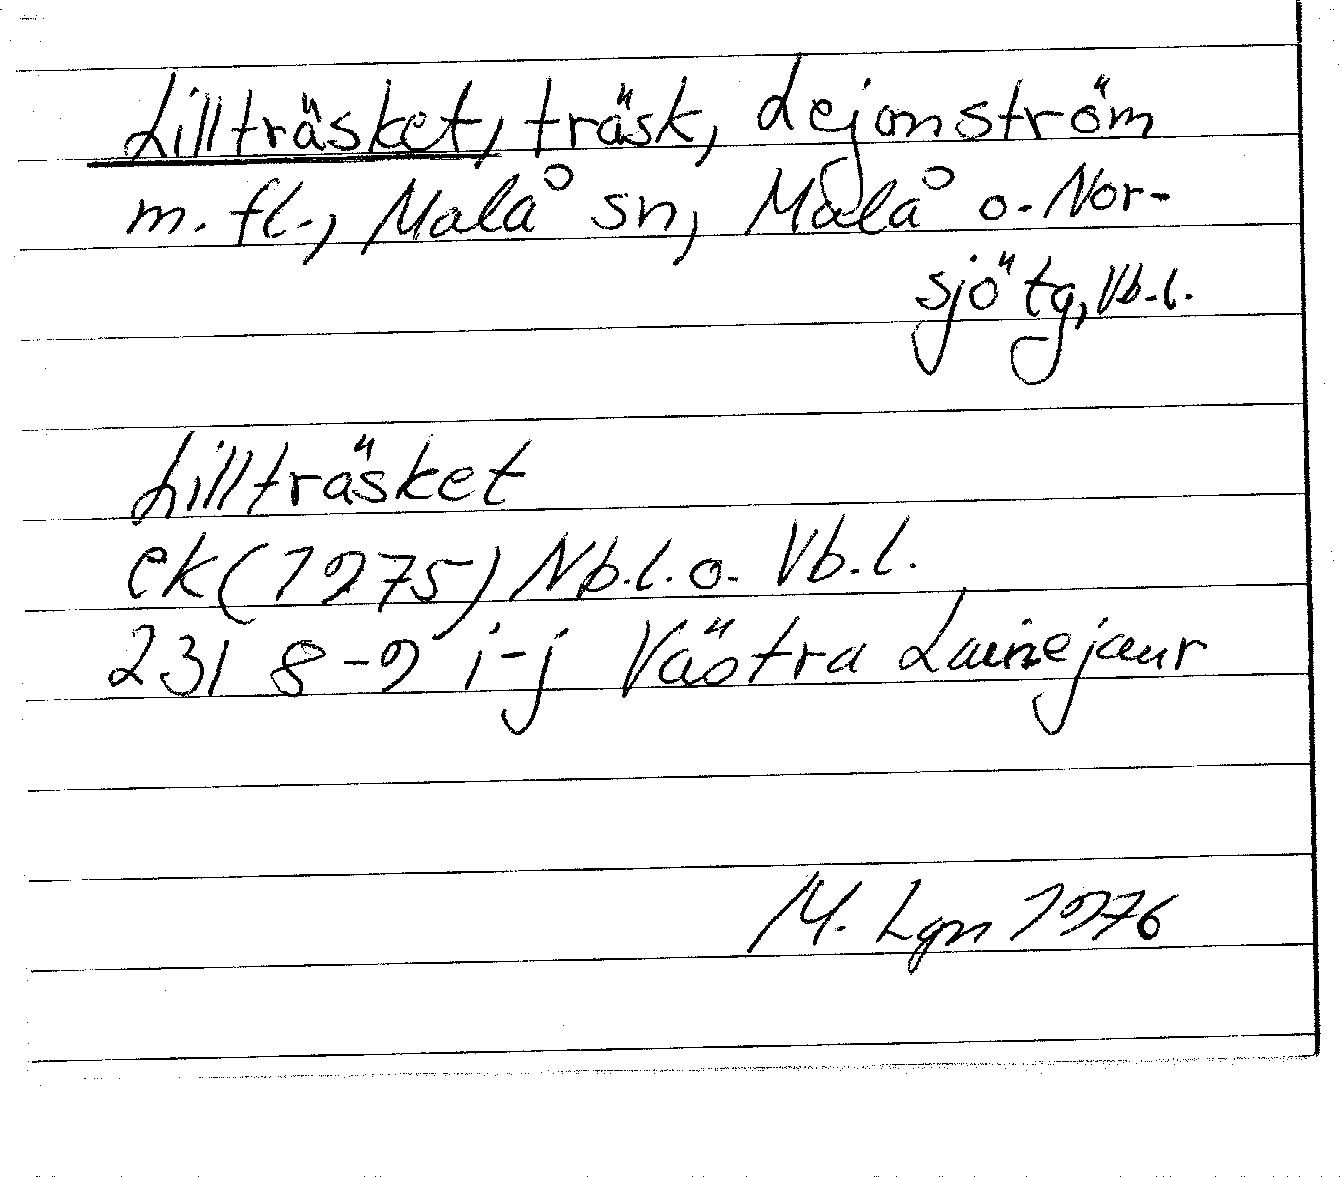 Lillträsket, träsk, Lejonström
m.fl., Malå sn, Malå o. Nor-
sjö tg, Vb.l.
Lillträsket
ek (1975) Nb.l. o. Vb.l.
231 8-9 i-j Västra Lainejaur
M. Lgn 1976